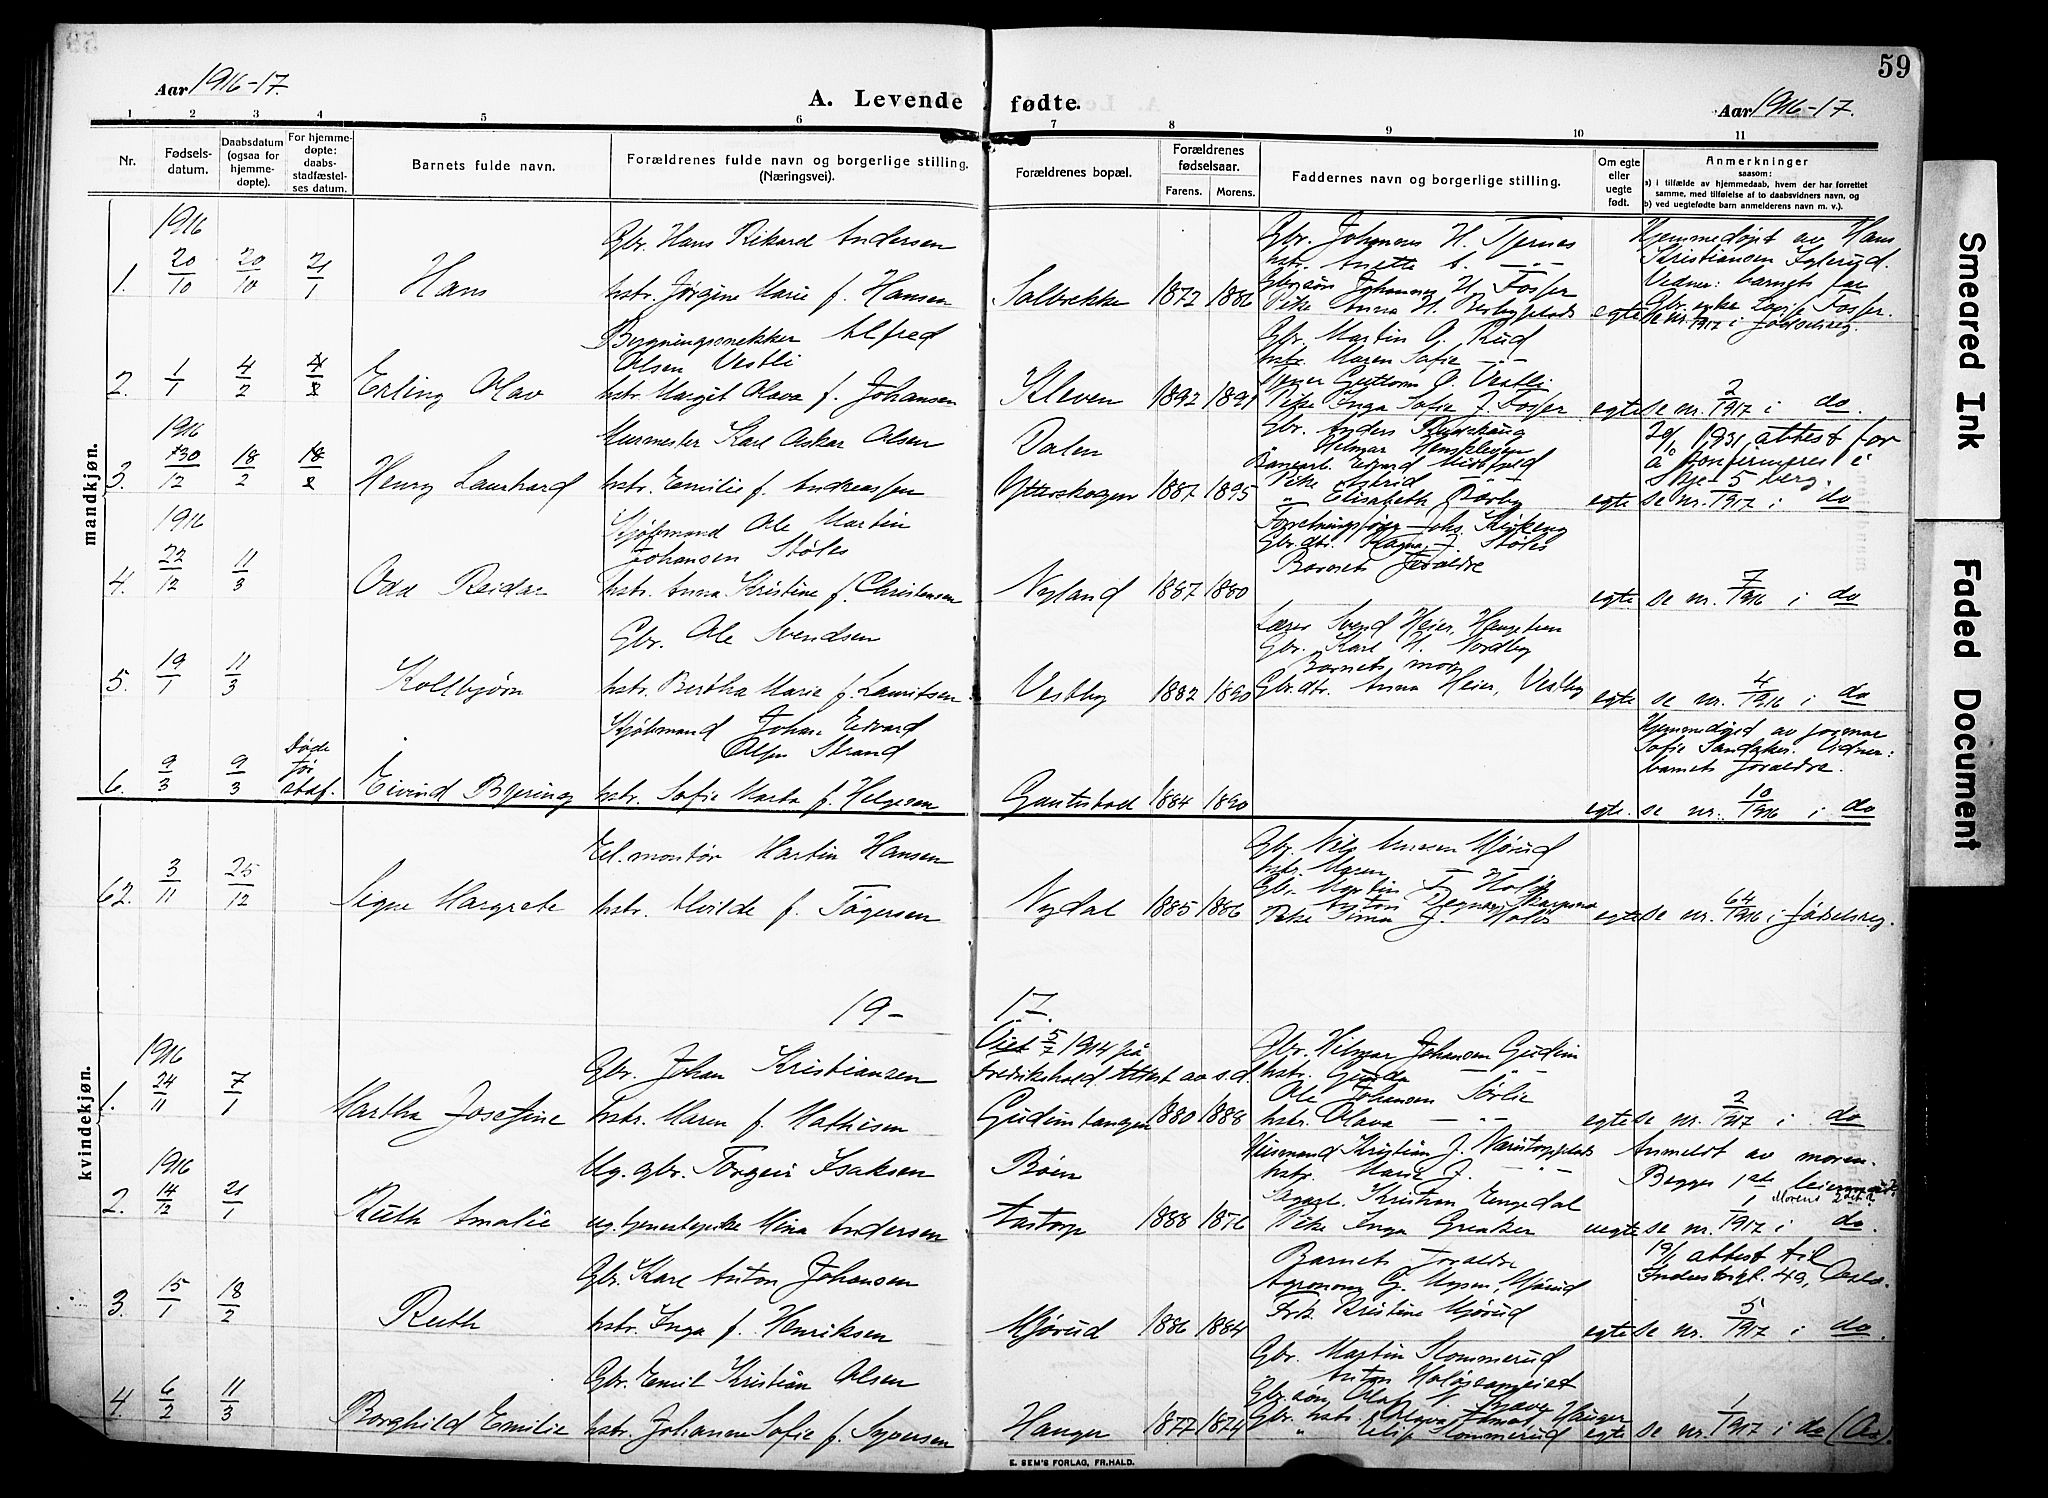 59
Aar 1916-17.
A. Levende fødte.
Aar 1916-17.
1 2 3 4 5 6 7 8 9 10 11
Nr.
Fødsels-
datum.
Daabsdatum
(ogsaa for
hjemme-
døpte).
For hjemme-
døpte:
daabs-
stadfæstel-
ses datum.
Barnets fulde navn.
Forældrenes fulde navn og borgerlige stilling.
(Næringsvei).
Forældrenes bopæl.
Forældrenes
fødselsaar.
Farens. Morens.
Faddernes navn og borgerlige stilling.
Om egte
eller
uegte
født.
Anmerkninger
saasom:
a) i tilfælde av hjemmedaab, hvem der har forrettet
samme, med tilføielse af to daabsvidners navn, og
b) ved uegtefødte barn anmelderens navn m. v.).
mandkjøn.
1916
1. 20/10 20/10 21/1
Hans
Gbr. Hans Rikard Andersen
hstr. Jørgine Marie f. Hansen
Salbrekke 1872 1886
Gbr. Johannes H. Tjernes
hstr. Anette A. — " —
Gbrsøn Johannes H. Fosser
Pike Anna H.
egte
Hjemmedøpt av Hans
Kristiansen
Vidner: barnets far
Gbr. enke Lovise Fosser.
se nr. 1/1917 i fødselsreg.
2. 1/1 4/2
Erling Olav
Bygningssnekker Alfred
Olsen Vestli
hstr. Margit Olava f. Johansen
Kleven 1892 1891
Gbr. Martin O. Rud
hstr. Maren Sofie — " —
Guttorm O. Vestli
Pike Inga Sofie J. Fosser
egte
se nr. 2/1917 i do.
1916
3. 30/12 18/2
Henry Laurhard
Murmester Karl Oskar Olsen
hstr. Emilie f. Andreassen
Dalen
Ytterskogen 1887 1895
Gbr. Anders
" Helmer
Pike Astrid — " —
" Elisabeth
egte
20/1 1931 attest for
å konfirmeres i
Skjeberg.
se nr. 5/1917 i do
1916
4. 22/12 11/3
Odd Reidar
Skjøtsmand Ole Martin
Johansen Støtes
hstr. Anna Kristine f. Christensen
Nyland 1887 1880
Forretningsfører Johs.
Gbr.dtr. Magna J. Støtes
Barnets foræeldre
egte
se nr. 7/1916 i do
5. 19/1 11/3
Kolbjørn
Gbr. Ole Svendsen
hstr. Bertha Marie f. Lauritsen.
Vestby 1882 1890
Lærer Svend Heier,
Gbr. Karl H. Nordby
Barnets mor
Gbr.dtr. Anna Heier, Vestby
egte
se nr. 4/1916 i do
6. 9/3 9/3
Døde
før
stadf.
Eivind Bjering
Skjøtsmand Johan Edvard
Olsen Strand
hstr. Sofie Marta f. Helgesen
Gautestad 1884 1890
egte.
Hjemmedøpt av jormor
Sofie Sandaker. Vidner:
barnets foræeldre.
se nr. 10/1916 i do
kvindekjøn.
62. 3/11 25/12
Signe Margrete
El. montør Martin Hansen
hstr. Alvilde f. Tøgersen
Nydal 1885 1886
Gbr. Nils Mjørud
hstr. Maren
Gbr. Martin J. Holøs
egte
se nr. 64/1916 i fødselsreg.
19-17.
1916
1. 24/11 7/1
Martha Josefine
Gbr. Johan Kristiansen
hstr. Maren f. Mathisen
Viet 5/7 1914 på
Fredrikshald Attest av s.d.
Gudimtangen 1880 1888
Gbr. Hilmar Johansen Gudim
hstr. Gunda — " —
Ole Johansen Sørlie
hstr. Olava — " —
egte
se nr. 2/1917 i do
1916
2. 14/12 21/1
Ruth Amalie
Ug. gbr. Torgeir Isaksen
ug. tjenestepike Mina Andersen
Bøen
Aastorp 1888 1876
Kristian J.
hstr. Marie J. — " —
Kristian Engedal
Pike Inga Greaker
uegte
Anmeldt av moren.
Begges 1ste leiermaal.
se nr. 1/1917 i do.
3. 15/1 18/2
Ruth
Gbr. Karl Anton Johansen
hstr. Inga f. Henriksen
Mjørud 1886 1884
Barnets foræeldre
Agronom G. Mysen, Mjørud
Frk. Kristine Mjørud
egte
19/1 attest til
Industrigt. 49, Oslo.
se nr. 5/1917 i do.
4. 6/2 11/3
Borghild Emilie
Gbr. Emil Kristian Olsen
hstr. Johanne Sofie f. Syversen
Hanger 1877 1874
Gbr. Martin Slommerud
Anton
Gbr.søn Olaf
Gbr. hstr.
" Slommerud
egte
se nr. 1/1917 i do (Aa).
E. SEM'S FORLAG, FR.HALD.
Smeared Ink
Faded Document